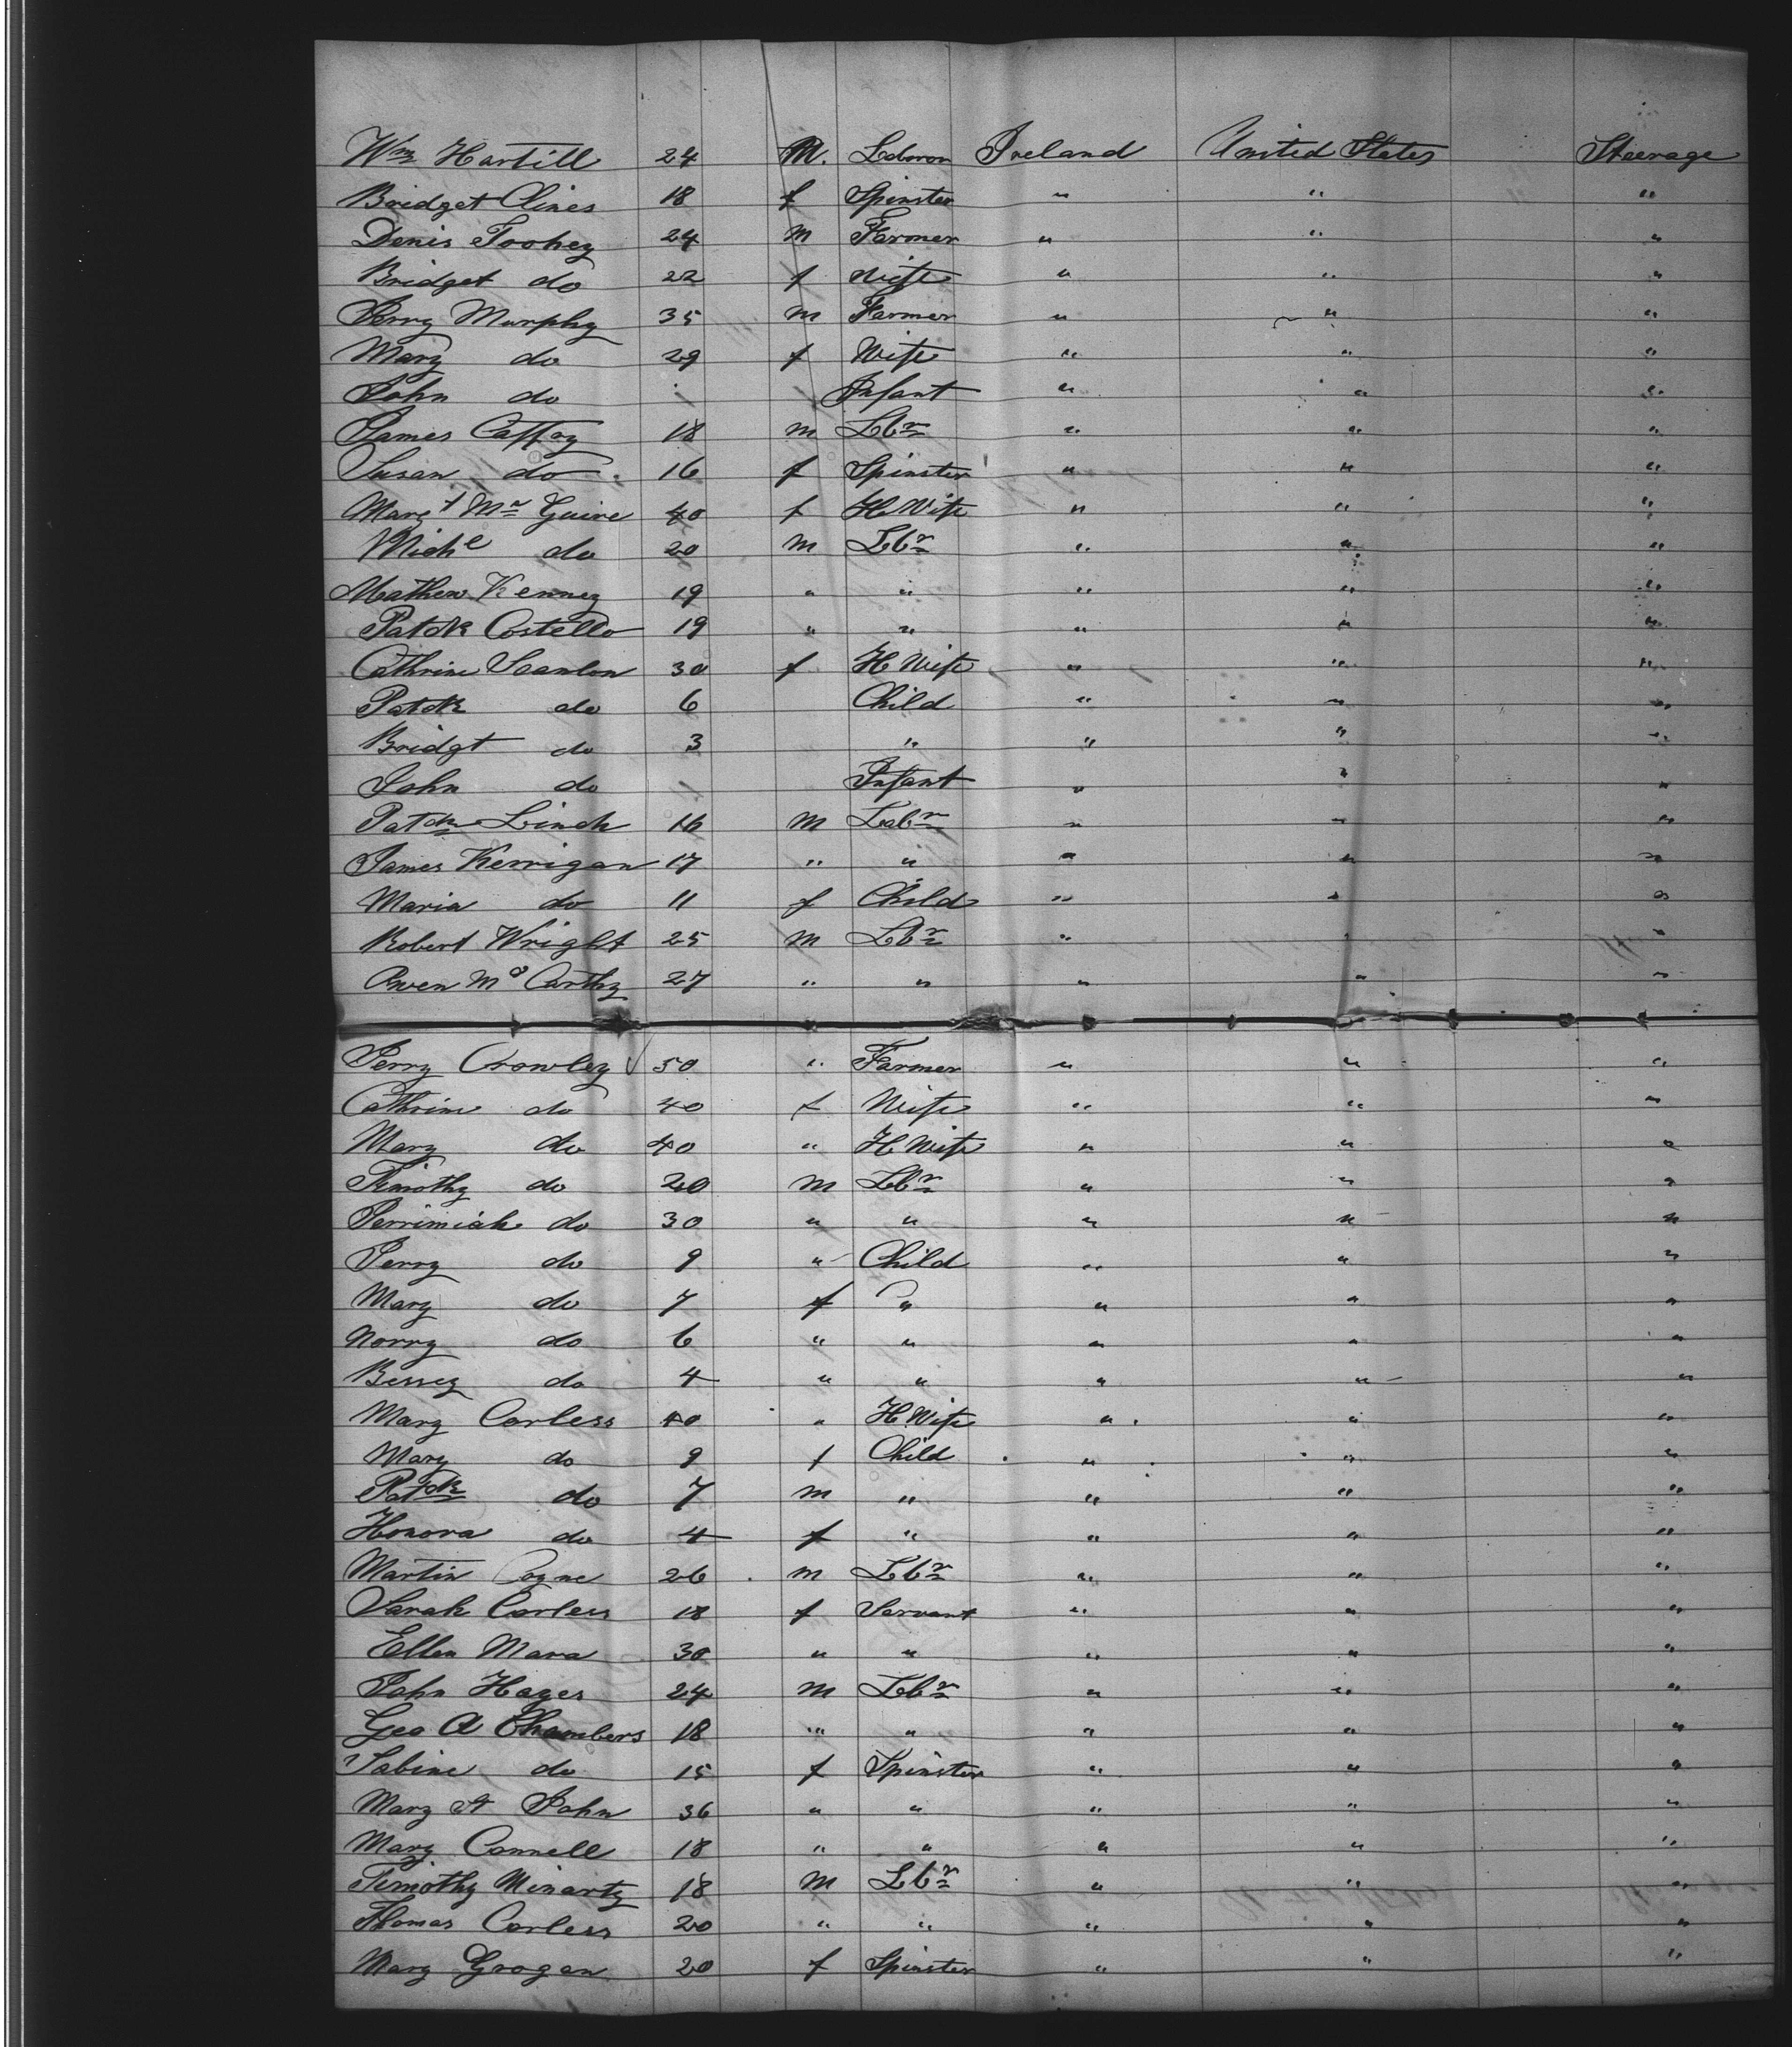 Wm Hartill 24 M. Laboror Ireland United States Steerage
Bridget Clines 18 f Spinster " " "
Denis Toohey 24 m Farmer " " "
Bridget do 22 f Wife " " "
Jerry Murphy 35 m Farmer " " "
Mary do 29 f Wife " " "
John do 1 Infant " " "
James Caffay 18 m Lbr " " "
Susan do 16 f Spinster " " "
Margt Mc Guire 40 f H Wife " " "
Michl do 20 m Lbr " " "
Mathew Kenney 19 " " " " "
Patck Costello 19 " " " " "
Cathrine Scanlon 30 f H Wife " " "
Patck do 6 Child " " "
Bridgt do 3 " " " "
John do 1 Infant " " "
Patck Linch 16 m Labr " " "
James Kerrigan 17 " " " " "
Maria do 11 f Child " " "
Robert Wright 25 m Lbr " " "
Owen Mc Carthy 27 " " " " "
Jerry Crowley 50 " Farmer " " "
Cathrine do 40 f Wife " " "
Mary do 40 " H Wife " " "
Timothy do 20 m Lbr " " "
Jerrimiah do 30 " " " " "
Jerry do 9 " Child " " "
Mary do 7 f " " " "
Norry do 6 " " " " "
Bessey do 4 " " " " "
Mary Corless 40 " H. Wife " " "
Mary do 9 f Child " " "
Patck do 7 m " " " "
Honora do 4 f " " " "
Martin Coyne 26 m Lbr " " "
Sarah Corless 18 f Servant " " "
Ellen Mara 30 " " " " "
John Hayes 24 m Lbr " " "
Geo A Chambers 18 " " " " "
Sabine do 15 f Spinster " " "
Mary St John 36 " " " " "
Mary Connell 18 " " " " "
Timothy Minarty 18 m Lbr " " "
Thomas Corless 20 " " " " "
Mary Grogan 20 f Spinster " " "